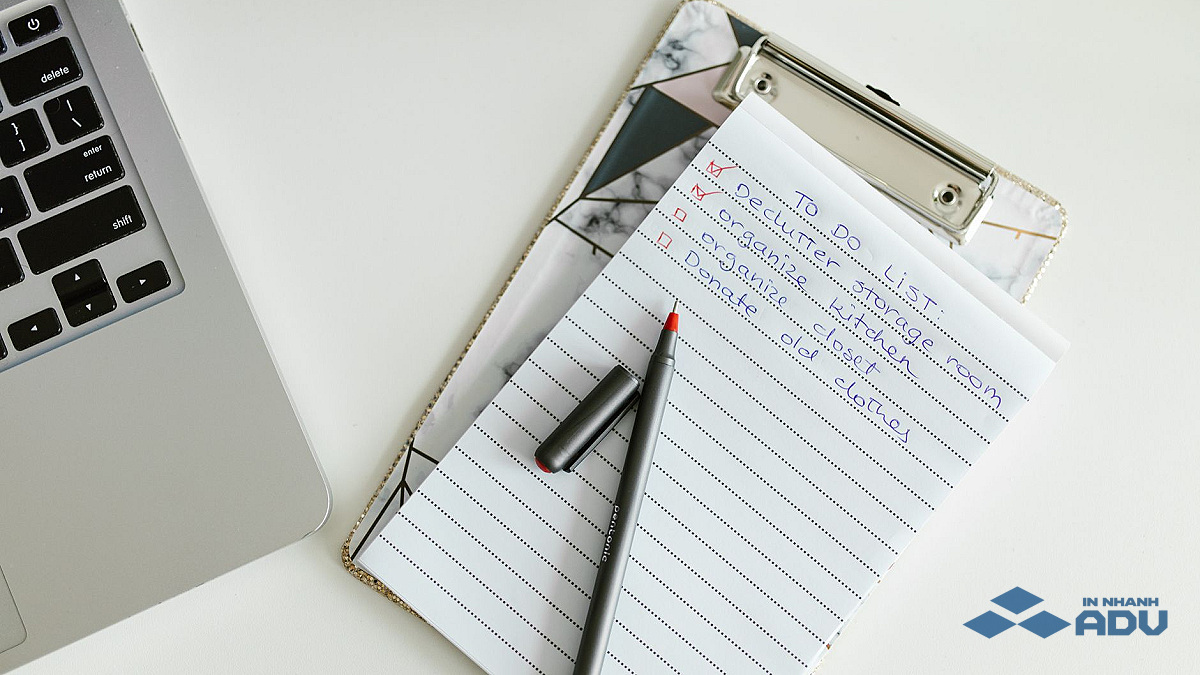 delete
}
]
|
\
enter
return
shift
TO DO LIST:
Declutter storage room
organize kitchen
organize closet
Donate old clothes
pentonic
IN NHANH
ADV